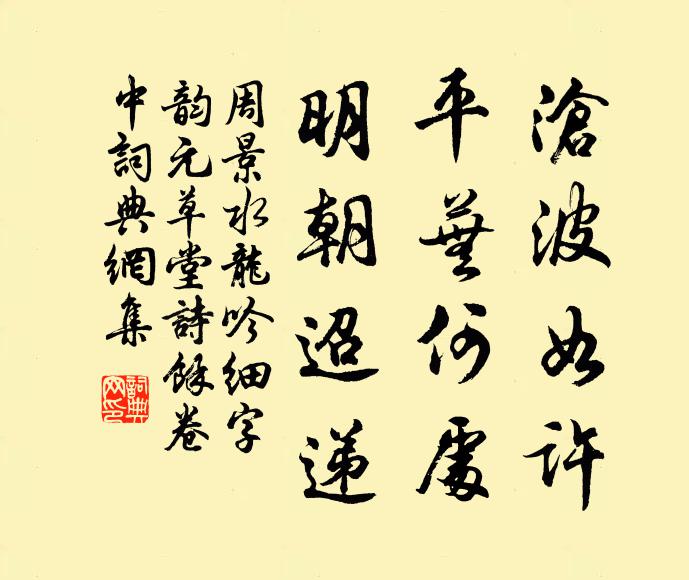 滄波如許
平蕪何處
明朝迢递
周景水龍吟細字
韵元草堂詩餘卷
中詞典網集
詞典网印